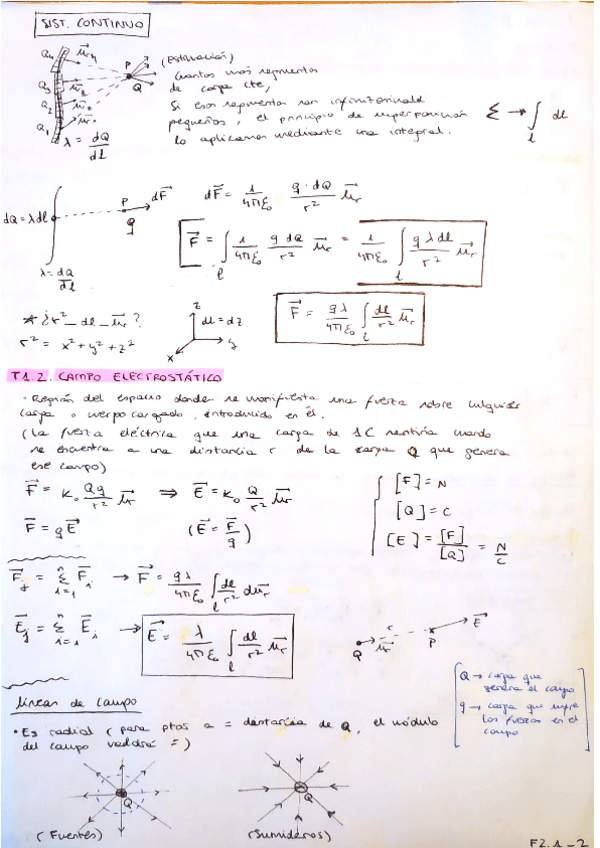 SIST. CONTINUO
Q₄ μ⃗r₄ (Estimación)
Q₃ μ⃗r₃ P Cuantos más segmentos
Q₂ Q de carga cte,
Q₁ Si esos segmentos son infinitesimales
λ = dQ/dl pequeños, el principio de superposición Σ → ∫_l dl
lo aplicamos mediante una integral.
dQ = λdl P dF⃗ q dF⃗ = 1/4πε₀ q·dQ/r² μ⃗r
F⃗ = ∫_l 1/4πε₀ q dQ/r² μ⃗r = 1/4πε₀ ∫_l q λ dl/r² μ⃗r
λ = dQ/dl
* ¿r² _ dl _ μ⃗r? z dl = dz y x F⃗ = qλ/4πε₀ ∫_l dl/r² μ⃗r
r² = x² + y² + z²
T1.2. CAMPO ELECTROSTÁTICO
· Región del espacio donde se manifiesta una fuerza sobre cualquier
carga o cuerpo cargado, introducido en él.
(La fuerza eléctrica que una carga de 1C sentiría cuando
se encuentra a una distancia r de la carga Q que genera
ese campo)
F⃗ = K₀ Qq/r² μ⃗r ⇒ E⃗ = K₀ Q/r² μ⃗r [F] = N
[Q] = C
F⃗ = qE⃗ (E⃗ = F⃗/q) [E] = [F]/[Q] = N/C
F⃗ = Σ F⃗ᵢ → F⃗ = qλ/4πε₀ ∫_l dl/r² dμ⃗r
E⃗ = Σ E⃗ᵢ → E⃗ = λ/4πε₀ ∫_l dl/r² μ⃗r Q μ⃗r r P E⃗
Q → carga que
genera el campo
q → carga que sufre
las fuerzas en el
campo
líneas de campo
• Es radial (para ptos a = distancia de Q, el módulo
del campo valdrá =)
Q Q
(Fuentes) (Sumideros)
F2.1_2